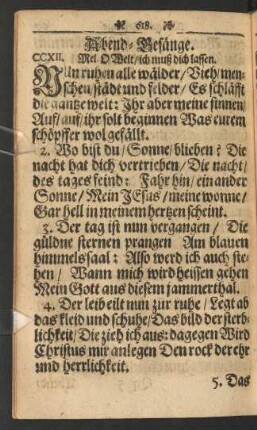 618.
Abend-Gesänge.
CCXII. Mel. O Welt/ich muß dich lassen.
NUn ruhen alle wälder/Vieh/men-
schen/städt und felder/Es schläfft
die gantze welt: Ihr aber meine sinnen/
Auf/auf/ihr solt beginnen Was eurem
schöpffer wol gefällt.
2. Wo bist du/Sonne/blieben? Die
nacht hat dich vertrieben/Die nacht/
des tages feind: Fahr hin/ein ander
Sonne/Mein JEsus/meine wonne/
Gar hell in meinem hertzen scheint.
3. Der tag ist nun vergangen/Die
güldne sternen prangen Am blauen
himmels saal: Also werd ich auch ste-
hen/Wann mich wird heissen gehen
Mein Gott aus diesem jammerthal.
4. Der leib eilt nun zur ruhe/Legt ab
das kleid und schuhe/Das bild der sterb-
lichkeit/Die zieh ich aus: dagegen Wird
Christus mir anlegen Den rock der ehr
und herrlichkeit.
5. Das